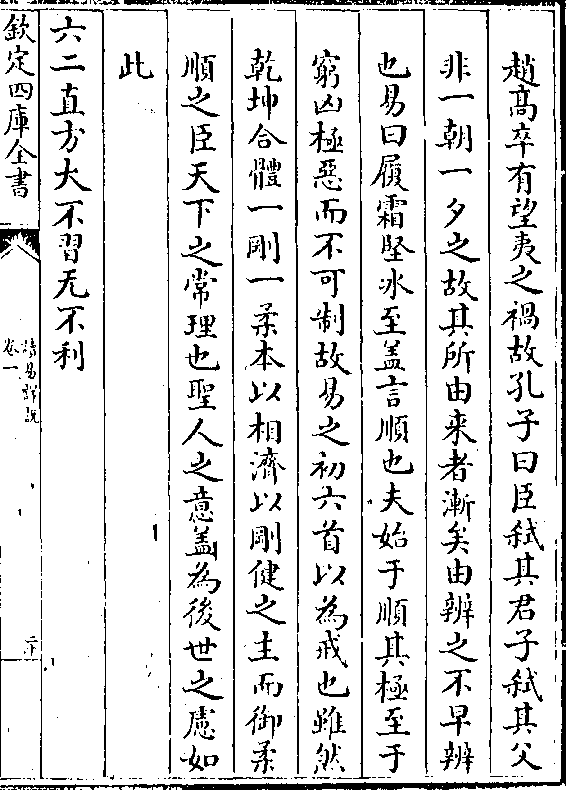 趙高卒有望夷之禍故孔子曰臣弑其君子弑其父
非一朝一夕之故其所由来者漸矣由辨之不早辨
也易曰履霜堅冰至盖言順也夫始于順其極至于
窮凶極惡而不可制故易之初六首以為戒也雖然
乾坤合體一剛一柔本以相濟以剛健之主而御柔
順之臣天下之常理也聖人之意盖為後世之慮如
此
六二直方大不習无不利
欽定四庫全書
讀易詳說
卷一